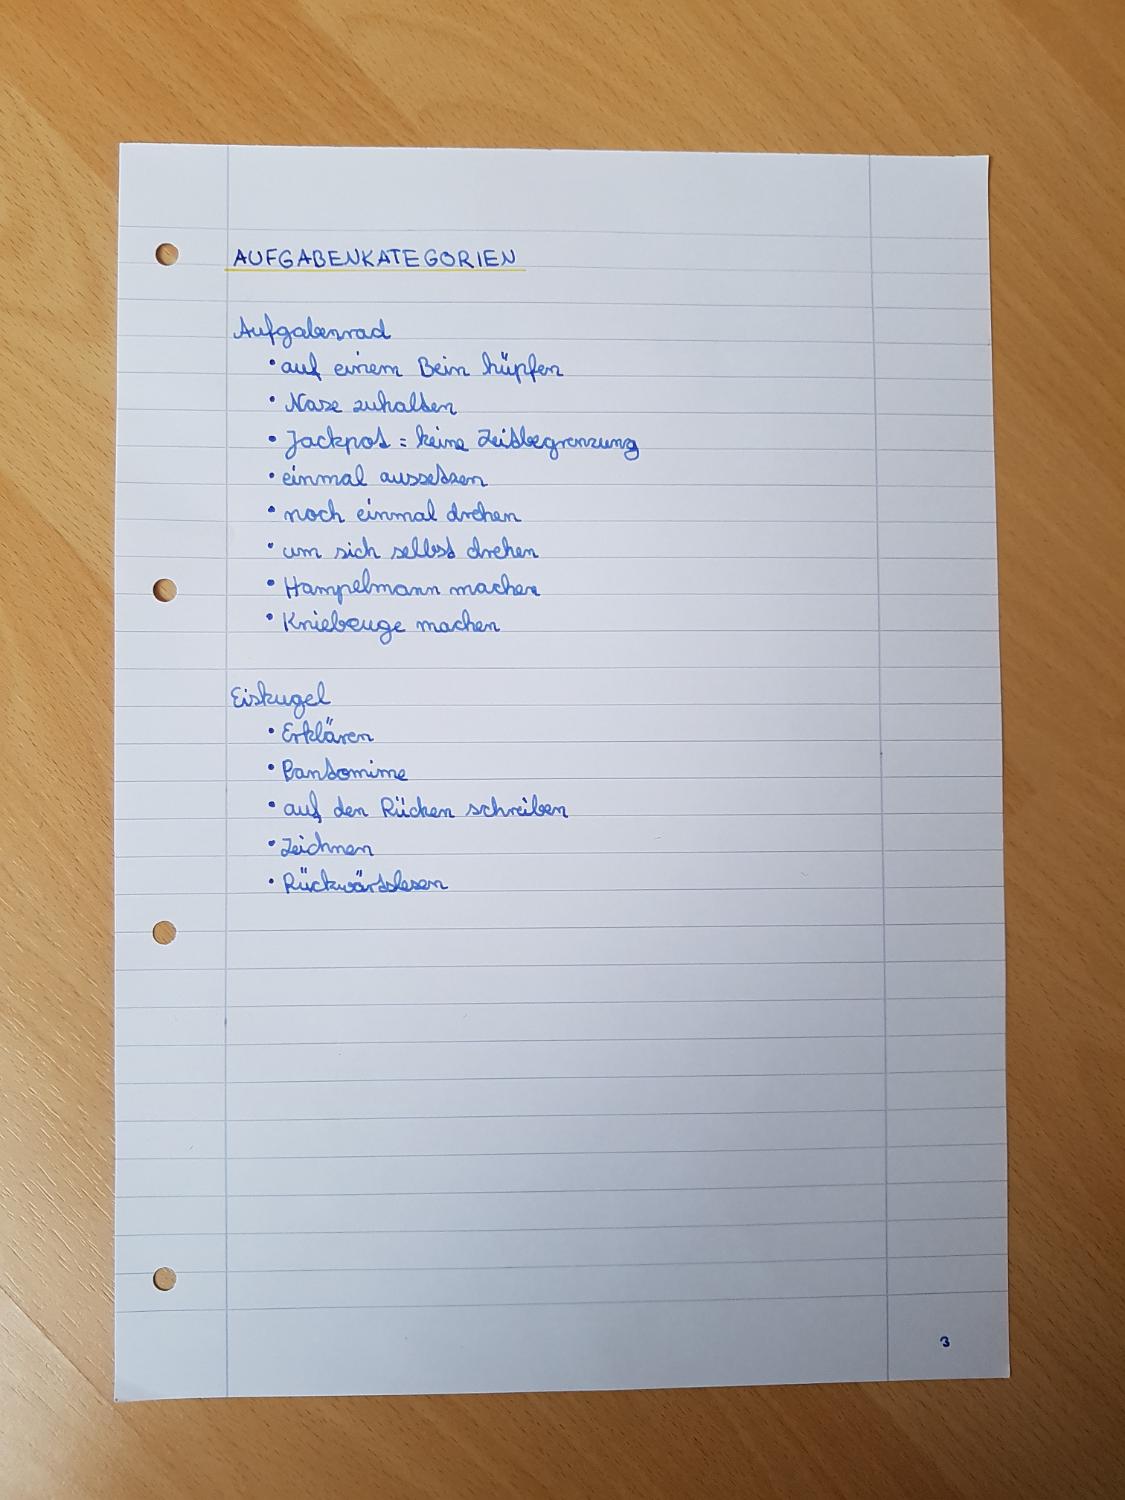 AUFGABENKATEGORIEN
Aufgabenrad
• auf einem Bein hüpfen
• Nase zuhalten
• Jackpot = keine Zeitbegrenzung
• einmal aussetzen
• noch einmal drehen
• um sich selbst drehen
• Hampelmann machen
• Kniebeuge machen
Eiskugel
• Erklären
• Pantomime
• auf den Rücken schreiben
• Zeichnen
• Rückwärtslesen
3